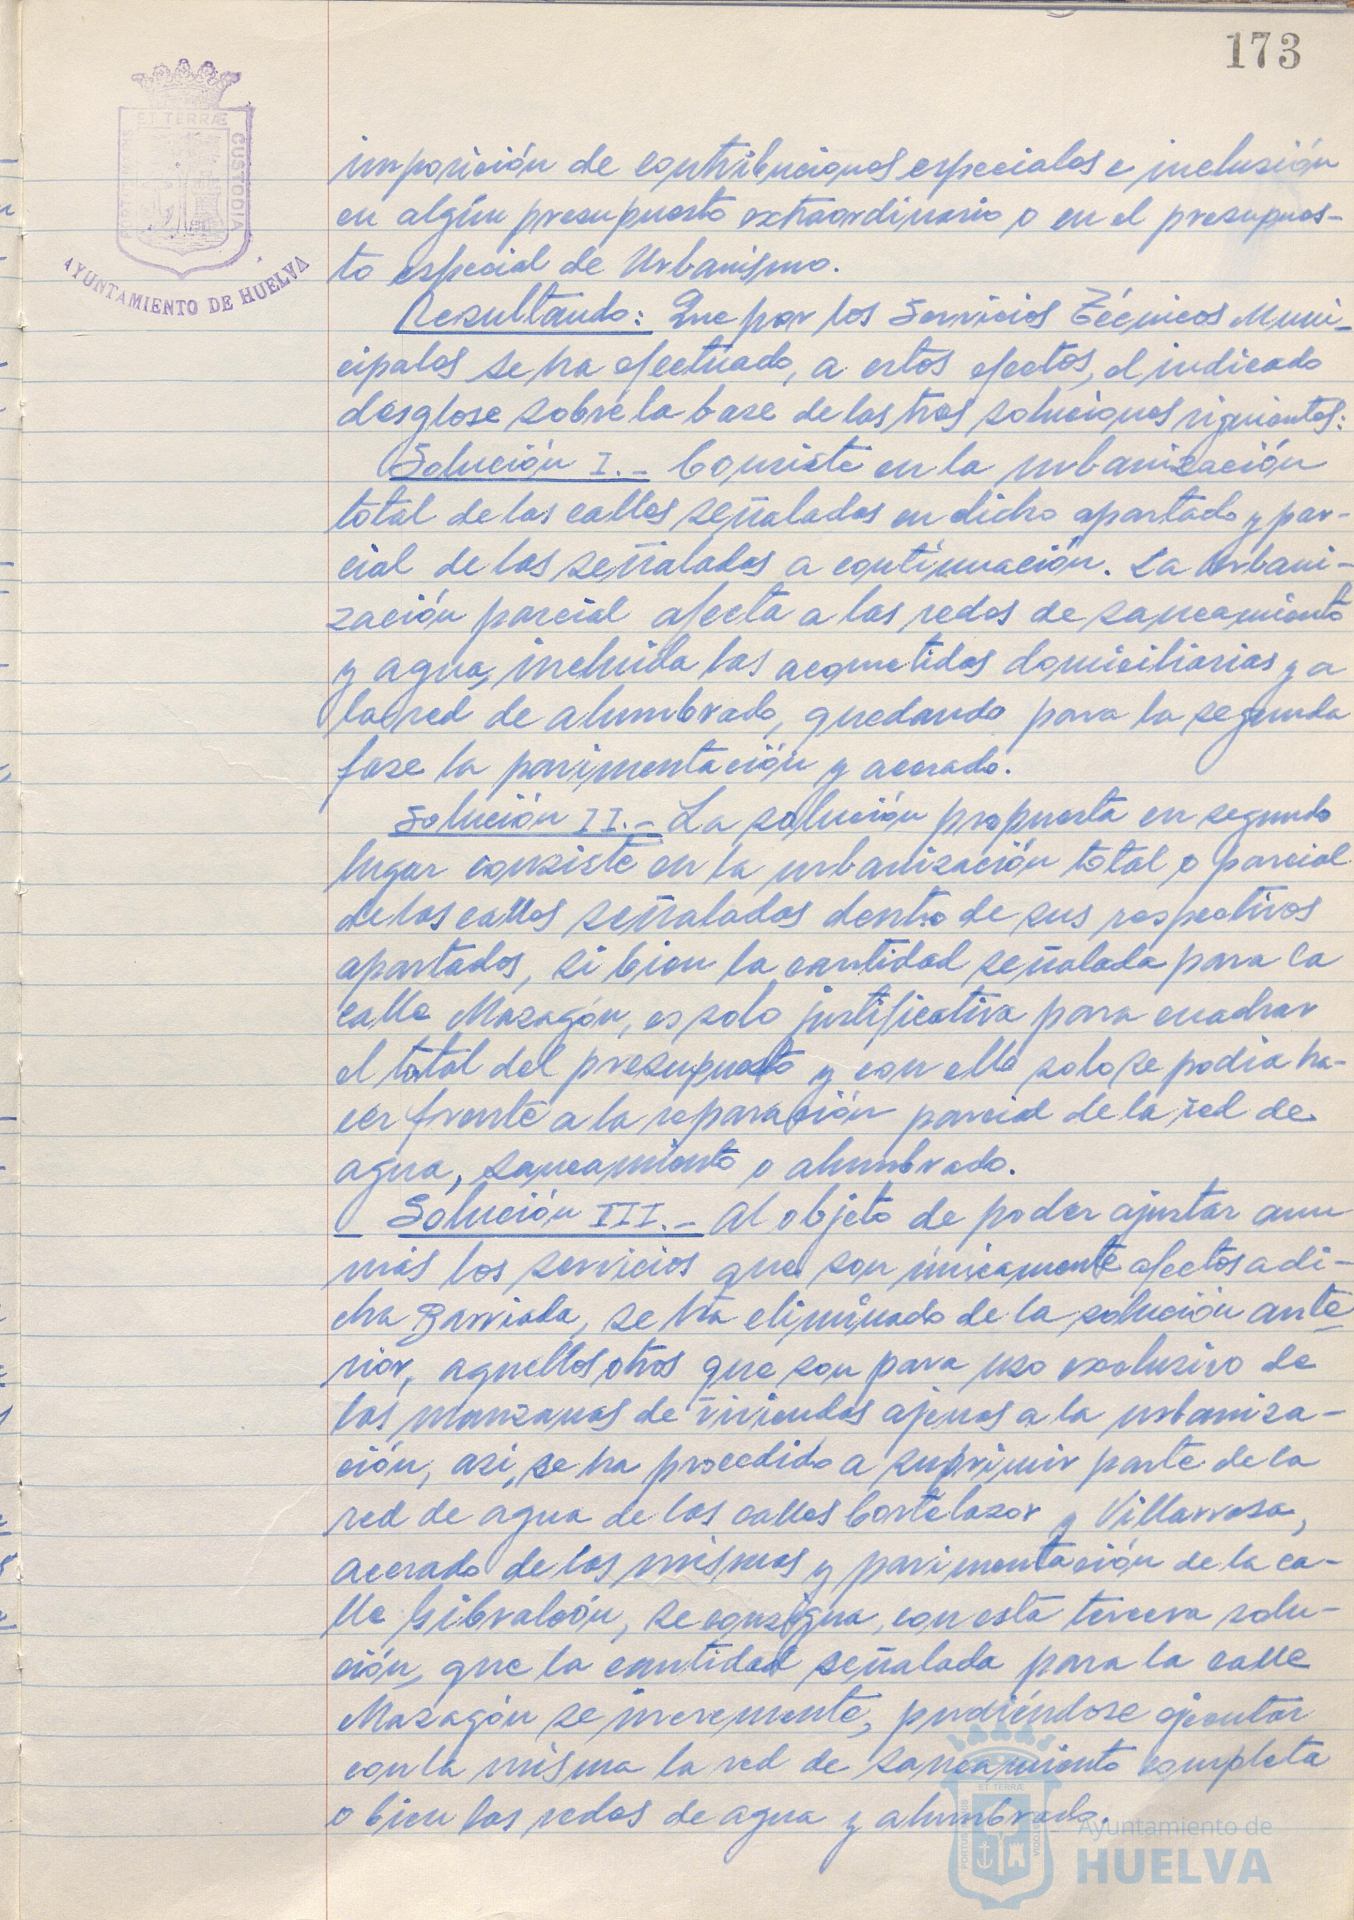 173
ET TERRÆ
CUSTODIA
PORTUS MARIS
AYUNTAMIENTO DE HUELVA
imposición de contribuciones especiales e inclusión
en algún presupuesto extraordinario o en el presupues-
to especial de Urbanismo.
Resultando: Que por los Servicios Técnicos Muni-
cipales se ha efectuado, a estos efectos, el indicado
desglose sobre la base de las tres soluciones siguientes:
Solución I.- Consiste en la urbanización
total de las calles señaladas en dicho apartado y par-
cial de las señaladas a continuación. La Urbani-
zación parcial afecta a las redes de saneamiento
y agua, incluida las acometidas domiciliarias y a
la red de alumbrado, quedando para la segunda
fase la pavimentación y acerado.
Solución II.- La solución propuesta en segundo
lugar consiste en la urbanización total o parcial
de las calles señaladas dentro de sus respectivos
apartados, si bien la cantidad señalada para la
calle Mazagón, es solo justificativa para cuadrar
el total del presupuesto y con ella solo se podia ha-
cer frente a la reparación parcial de la red de
agua, saneamiento o alumbrado.
Solución III.- Al objeto de poder ajustar aun
más los servicios que son únicamente afectos a di-
cha Barriada, se ha eliminado de la solución ante-
rior, aquellos otros que son para uso exclusivo de
las manzanas de viviendas ajenas a la urbaniza-
ción, asi, se ha procedido a suprimir parte de la
red de agua de las calles Cortelazor y Villarrasa,
acerado de las mismas y pavimentación de la ca-
lle Gibraleón, se consigue, con esta tercera solu-
ción, que la cantidad señalada para la calle
Mazagón se incremente, pudiéndose ejecutar
con la misma la red de saneamiento completa
o bien las redes de agua y alumbrado.
Ayuntamiento de
HUELVA